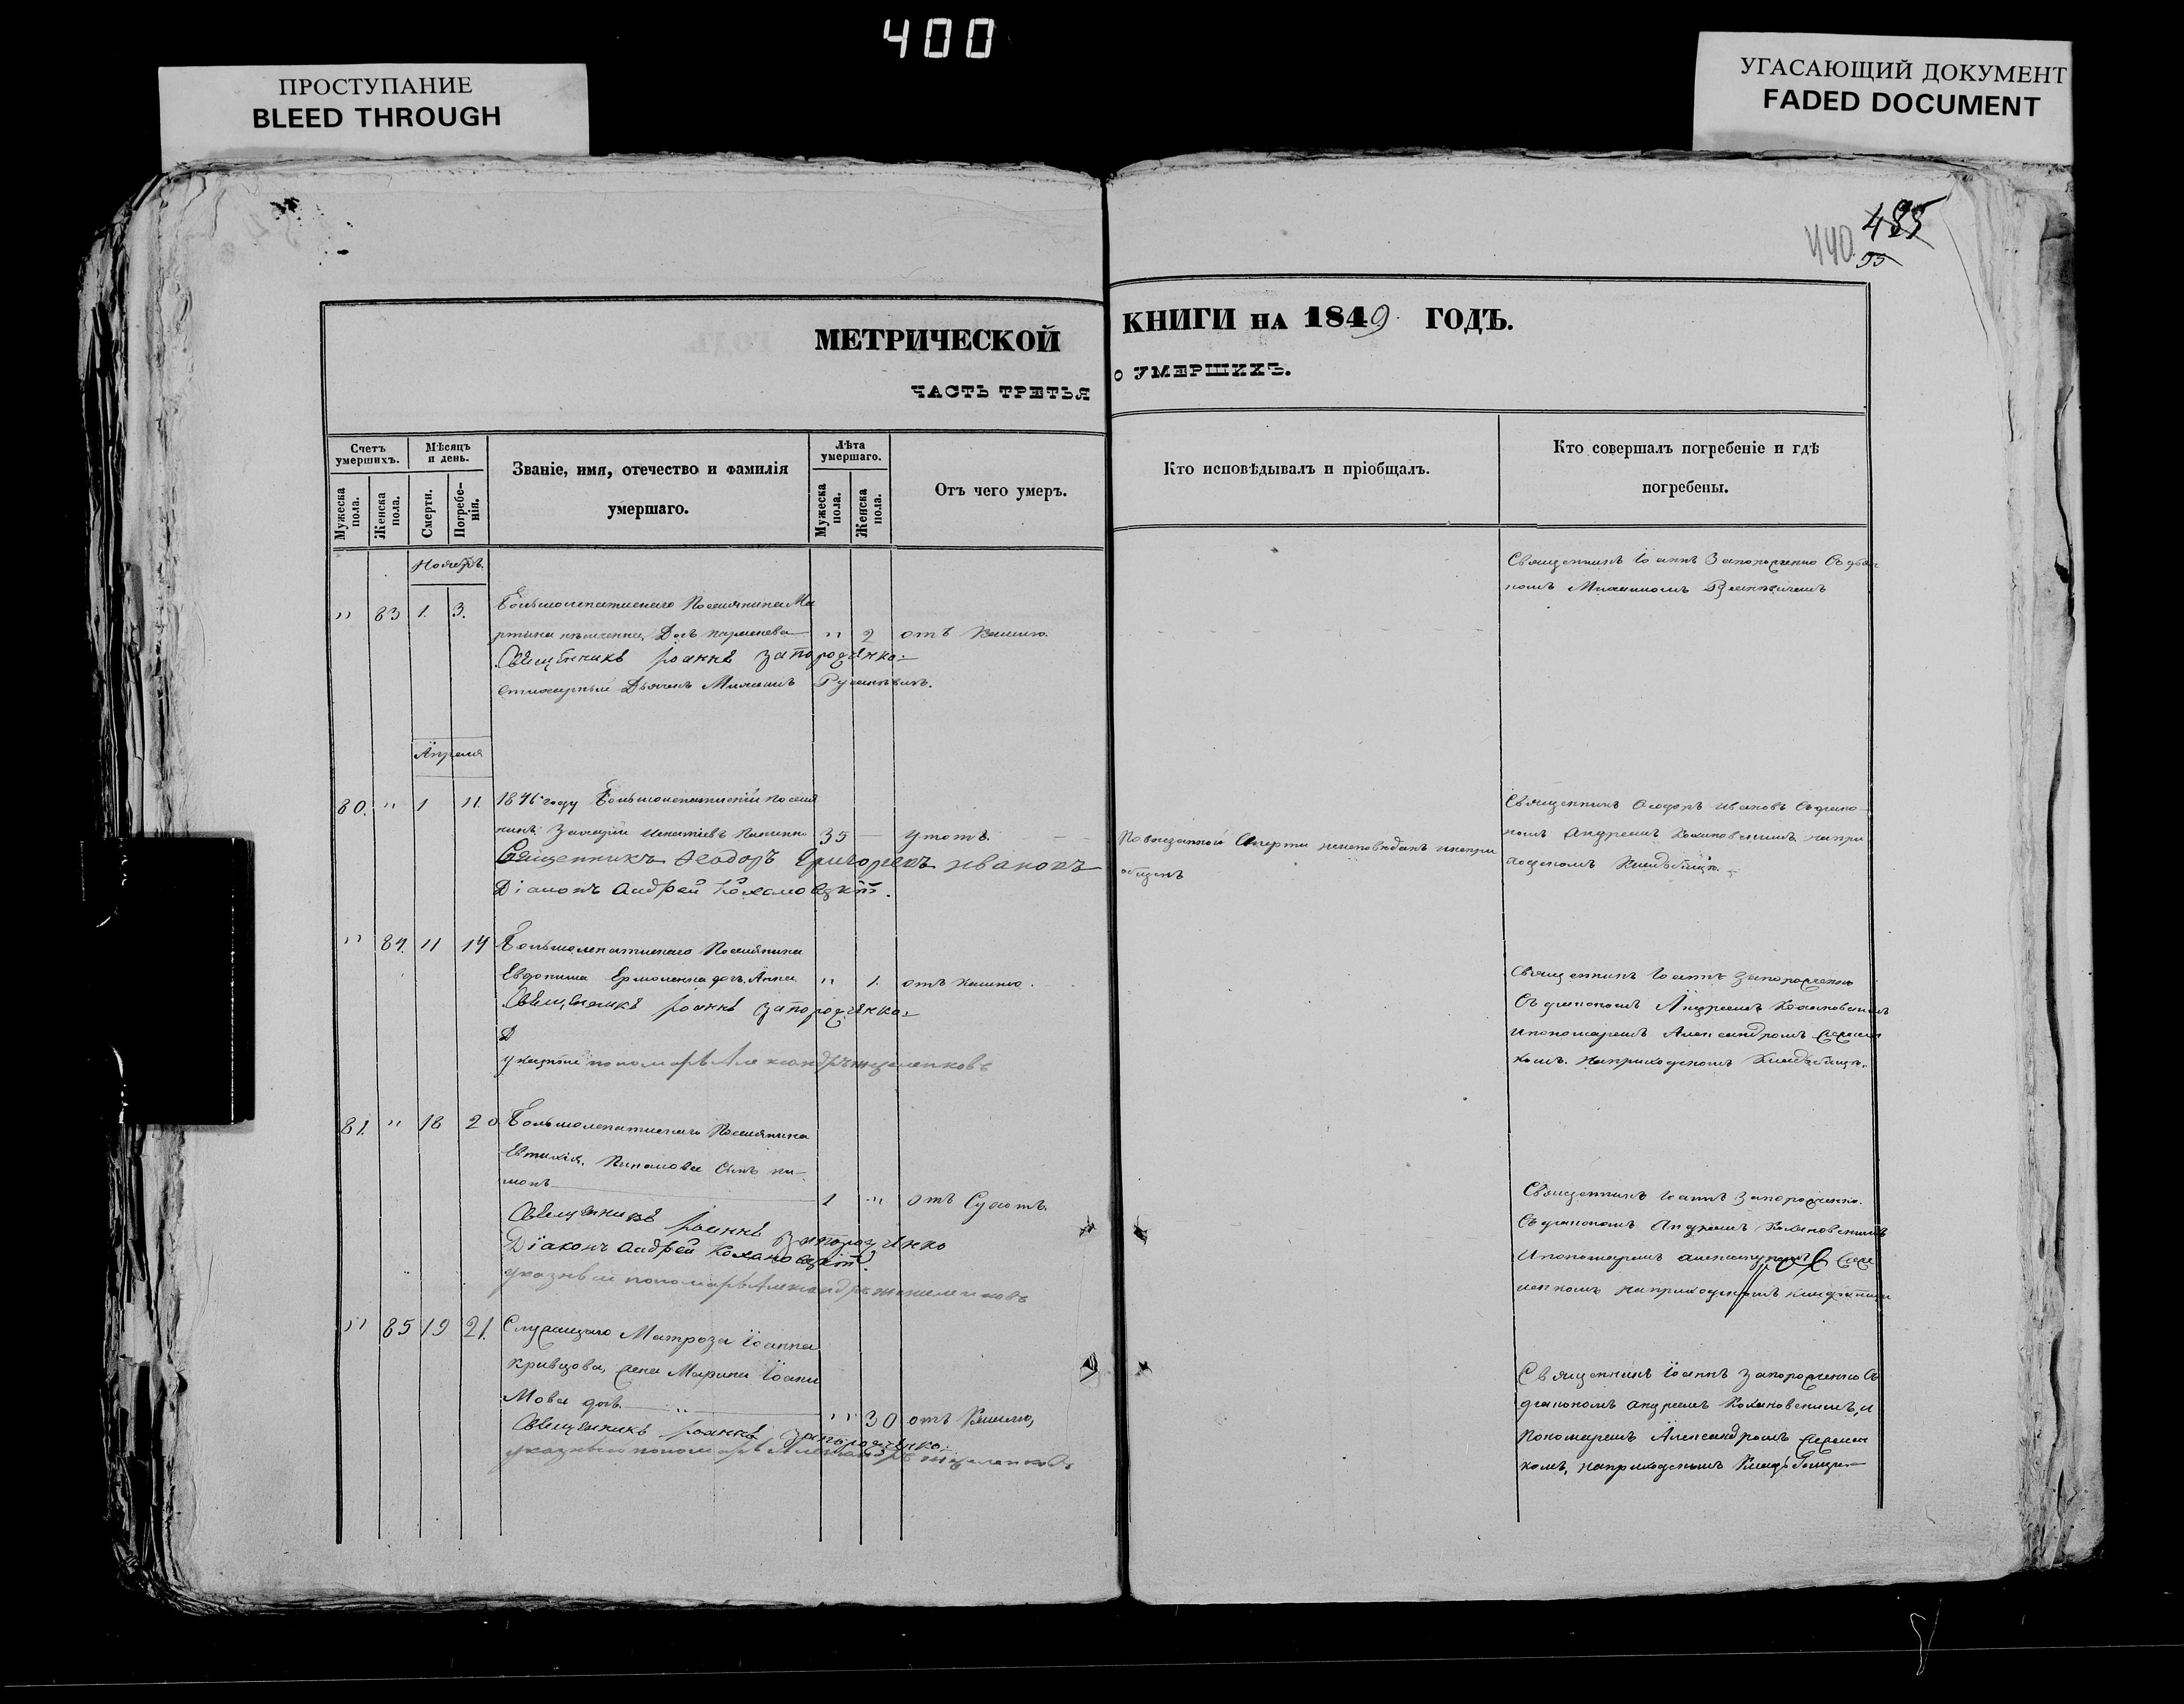 400
ПРОСТУПАНИЕ
BLEED THROUGH
УГАСАЮЩИЙ ДОКУМЕНТ
FADED DOCUMENT
485
440.
95
МЕТРИЧЕСКОЙ КНИГИ НА 1849 ГОДЪ.
ЧАСТЬ ТРЕТЬЯ О УМЕРШИХЪ.
Счетъ умершихъ.
Мужеска пола.
Женска пола.
Мѣсяцъ и день.
Смерти.
Погребенія.
Званіе, имя, отечество и фамилія
умершаго.
Лѣта умершаго.
Мужеска пола.
Женска пола.
Отъ чего умеръ.
Кто исповѣдывалъ и пріобщалъ.
Кто совершалъ погребеніе и гдѣ
погребены.
Ноябрь.
" 83 1. 3. Большолепатискаго Поселянина Ма
ртина дочь " 2 отъ Кашлю.
Священникъ Іоаннъ Запорожченко
Дьячекъ
Священникъ Іоаннъ Запорожченко Съ дья
комъ
Апреля
80. " 1 11. 1846 году поселя
нинъ 35 утопъ.
Священникъ Ѳеодоръ Григорьевъ Ивановъ
Діаконъ Андрей Кохановскій.
По внезапной Смерти неисповѣданъ инепри
общенъ
Священникъ Ѳеодоръ Ивановъ Съ діако
номъ Андреемъ Кохановскимъ напри
ходскомъ Кладбищѣ.
" 84. 11 14 Большолепатискаго Поселянина
Евдокима Ермоленка дочь Анна " 1. отъ кашлю.
Священникъ Іоаннъ Запорожченко
Д
указный пономарь Александръ
Священникъ Іоаннъ Запорожченко
Съ діакономъ Андреемъ Кохановскимъ
ипономаремъ Александромъ
комъ. Наприходскомъ Кладбищѣ.
81. " 18 20. Большолепатискаго Поселянина
Евтихія Сынъ
1 " отъ Сухотъ.
Священникъ Іоаннъ Запорожченко
Діаконъ Андрей Кохановскій
указный пономарь Александръ
Священникъ Іоаннъ Запорожченко.
Съ діакономъ Андреемъ Кохановскимъ
Ипономаремъ
наприходскомъ кладбищѣ
" 85 19 21. Служащаго Матроза Іоанна
Кривцова жена Марина Іоаки
мова дочь " 30 отъ Кашлю,
Священникъ Іоаннъ Запорожченко
указный пономарь Александръ
Священникъ Іоаннъ Запорожченко Съ
діакономъ Андреемъ Кохановскимъ, и
Пономаремъ Александромъ
комъ, наприходскомъ Кладбищѣ